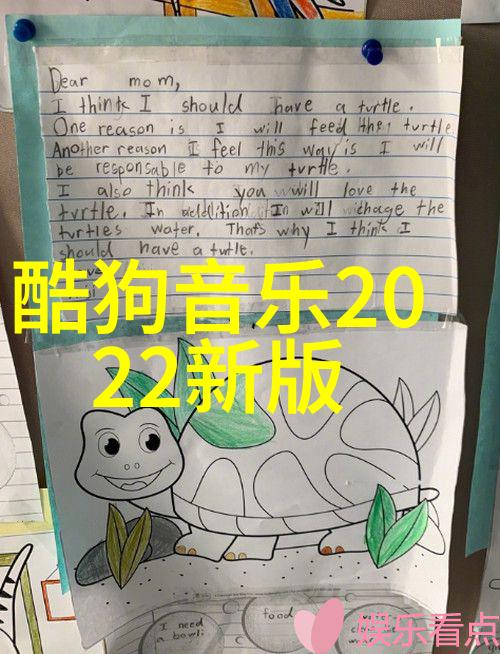 Dear mom,
I think I should have a turtle.
One reason is I will feed the turtle.
Another reason I feel this way is I will
be responsable to my turtle.
I also think you will love the
turtle. In addition I will chage the
turtles water. Thats why I think I
should have a turtle.
酷狗音乐20
22新版
I need
a bowl
food
娱乐看点